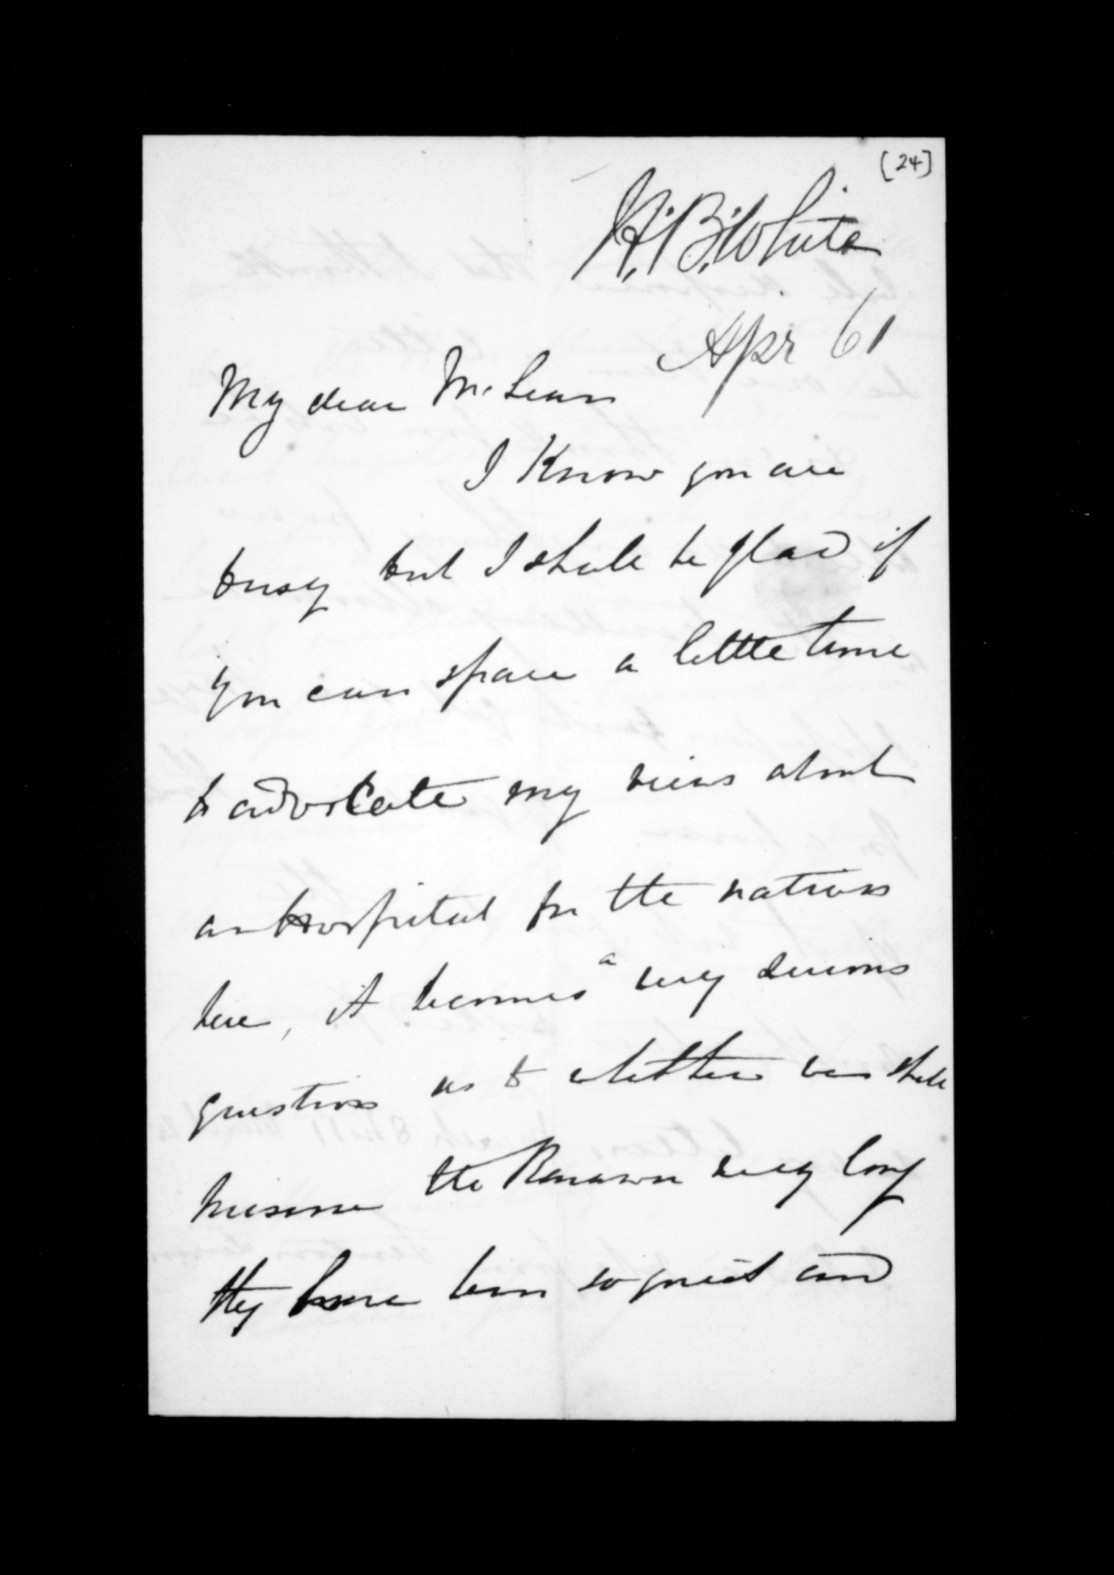 [24]
H. B. White
Apr 61
My dear McLean
I Know you are
busy but I shall be glad if
you can spare a little time
to advocate my views about
an hospital for the natives
here, it becomes a very serious
question as to whether we shall
the very long
they have been so great and